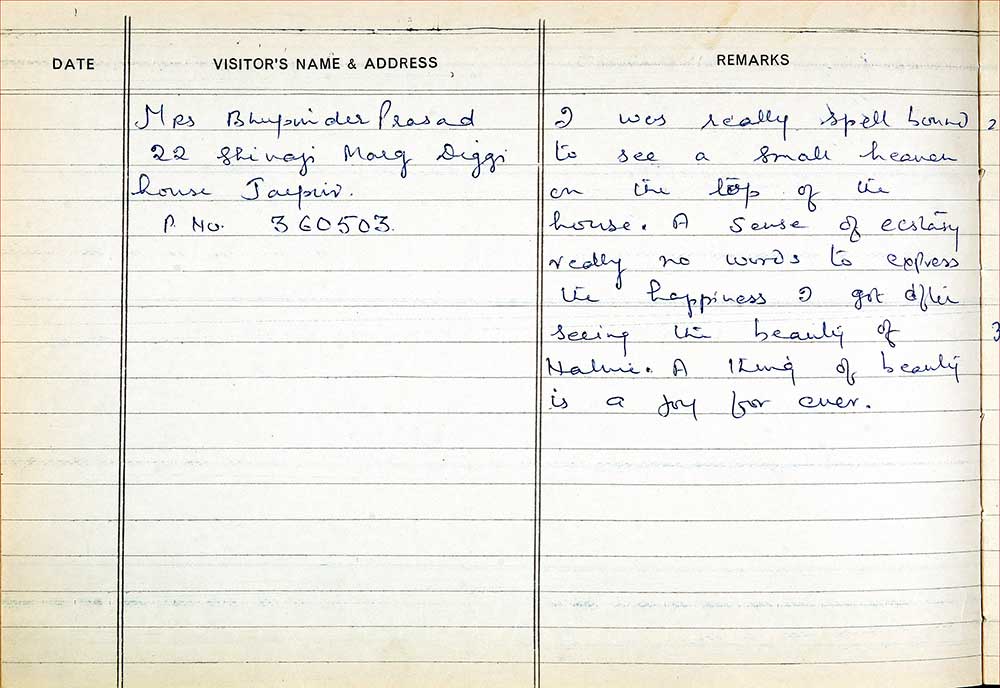 DATE
VISITOR'S NAME & ADDRESS
REMARKS
Mrs Bhupinder Prasad
22 Shivaji Marg Diggi
house Jaipur.
P. No. 360503.
I was really Spell bound
to see a small heaven
on the top of the
house. A sense of ecstasy
really no words to express
the happiness I got after
seeing the beauty of
Nature. A thing of beauty
is a joy for ever.
2
3